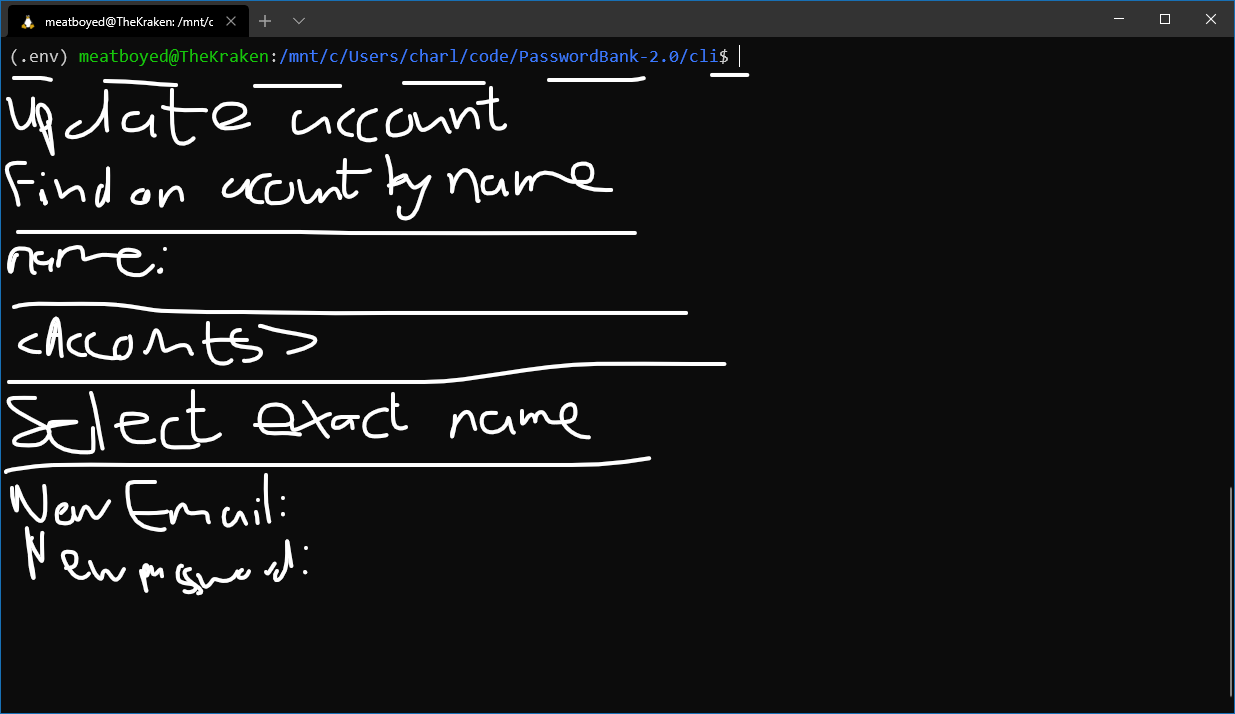 meatboyed@TheKraken: /mnt/c
(.env) meatboyed@TheKraken:/mnt/c/Users/charl/code/PasswordBank-2.0/cli$
Update account
Find an acount by name
name:
<Acconts>
Select exact name
New Email:
New password: